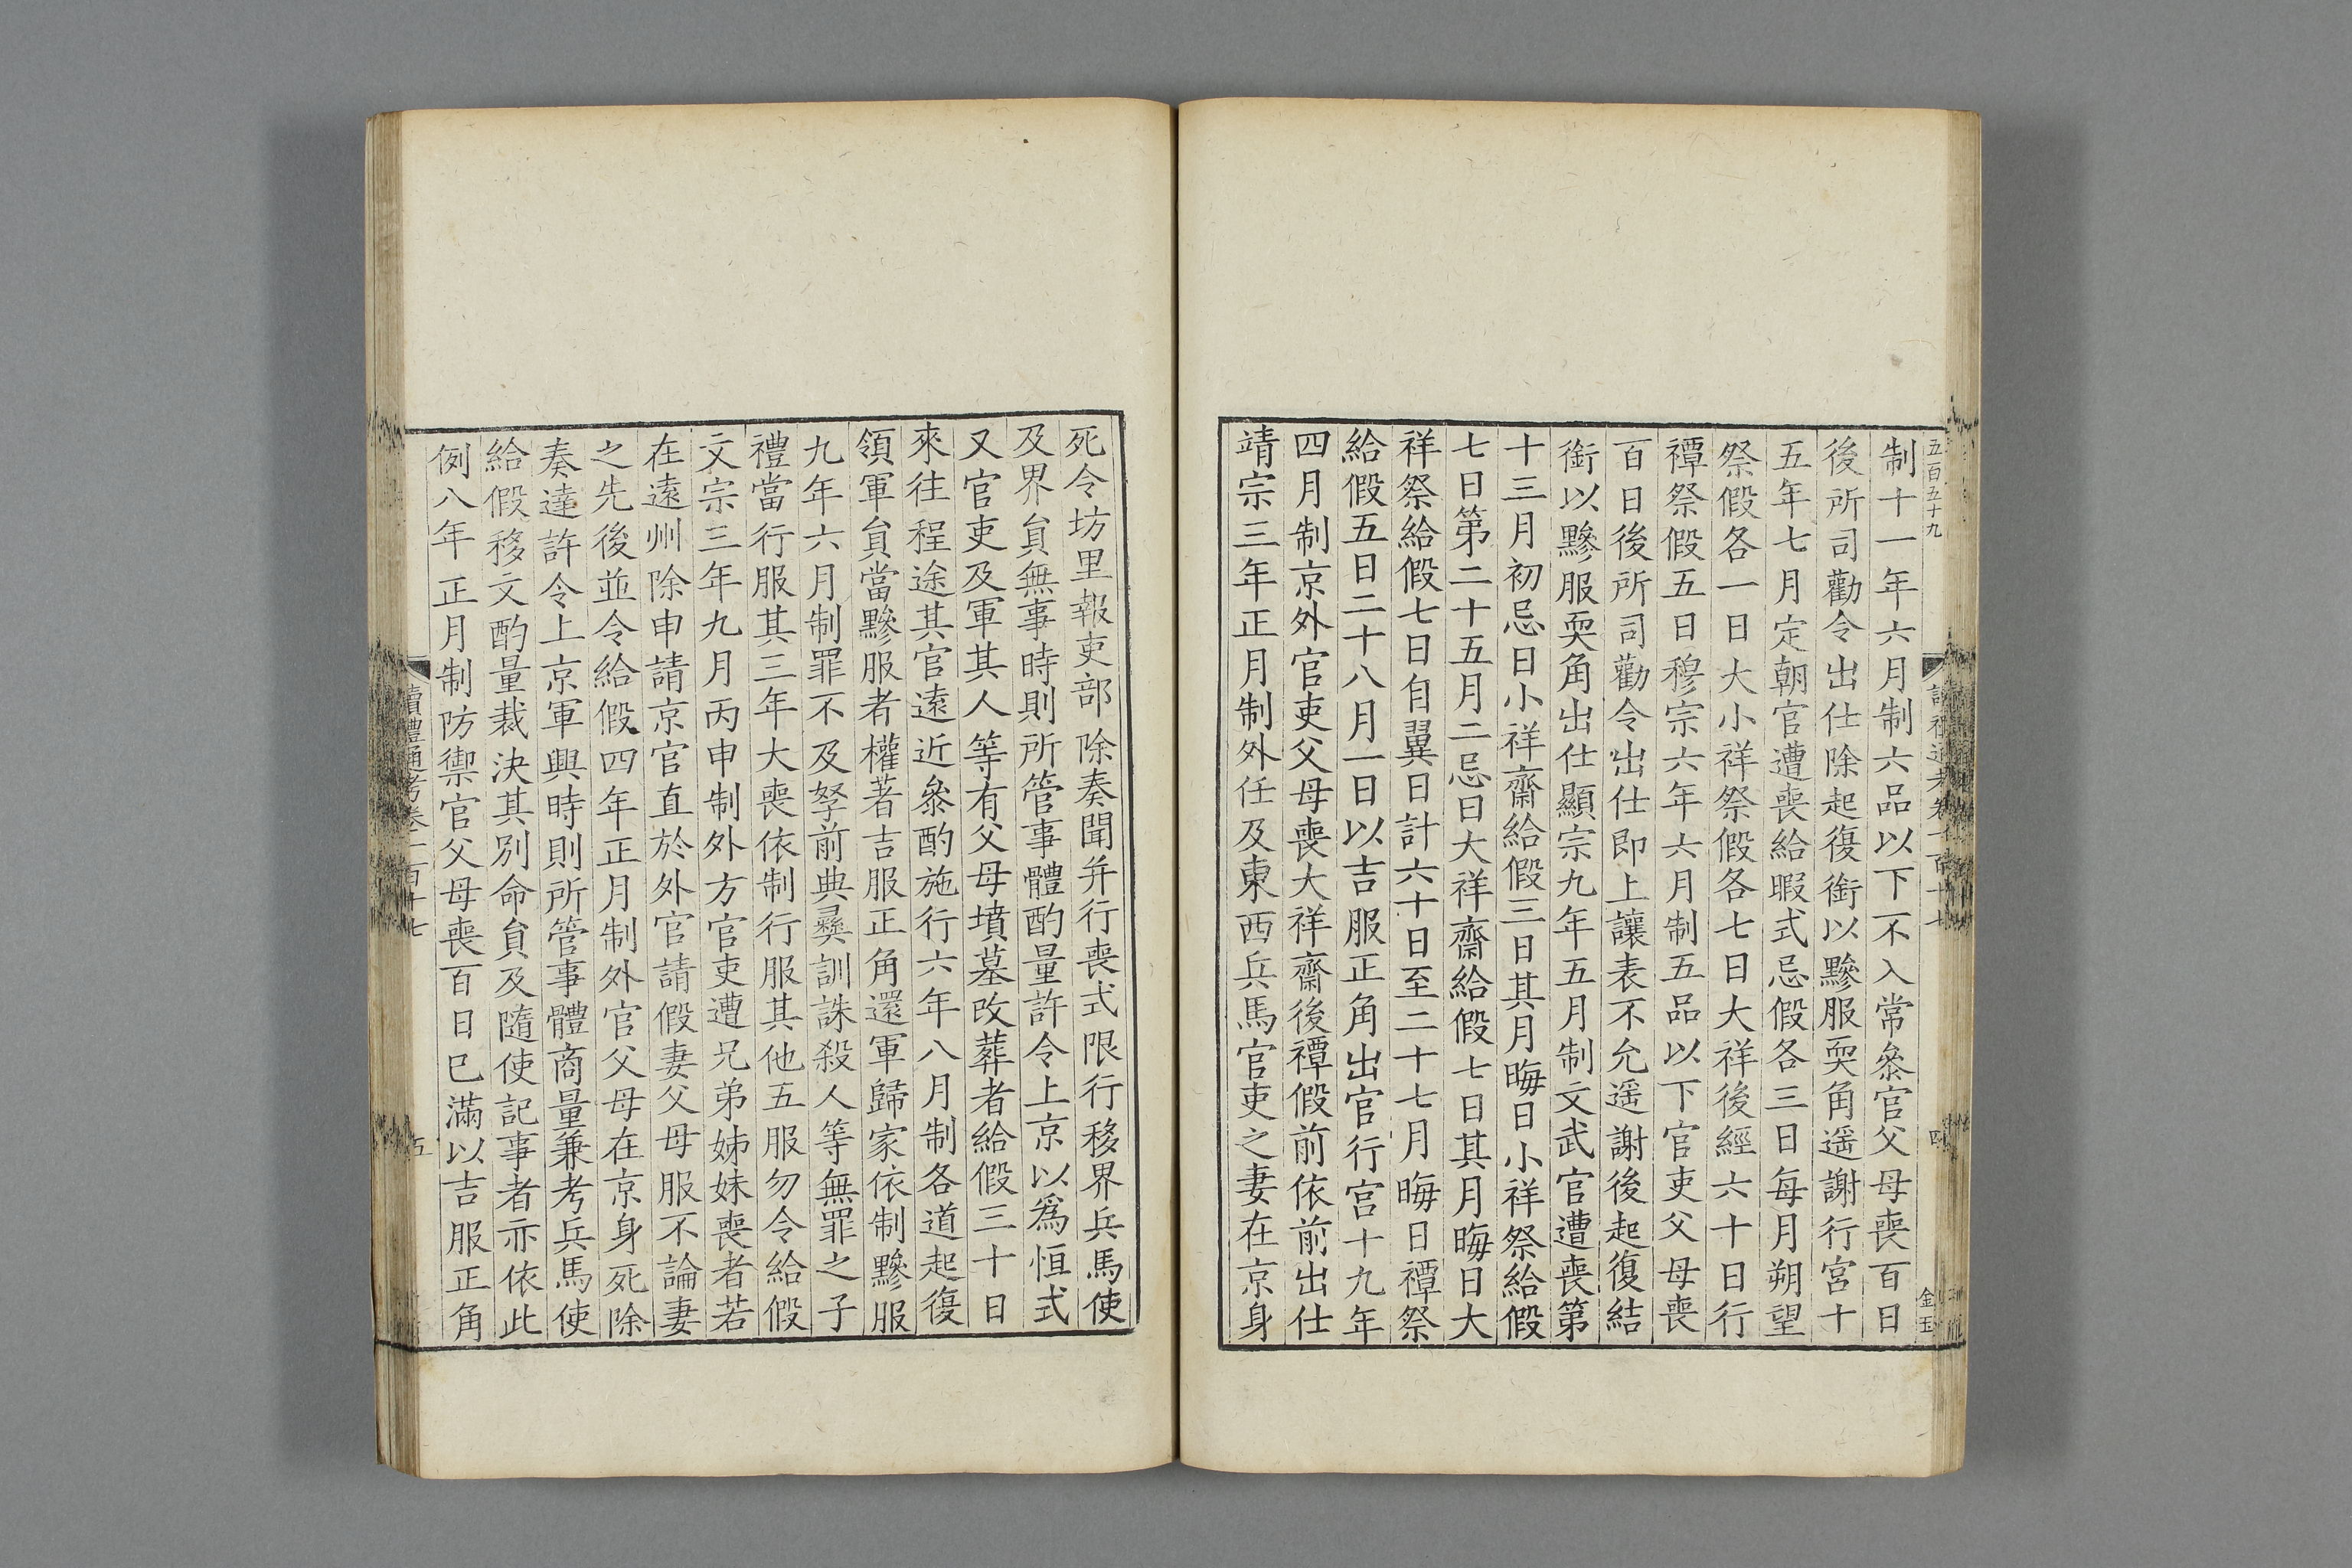 五百五十九
制十一年六月制六品以下不入常叅官父母喪百日
後所司勸令出仕除起復銜以黲服耎角遥謝行宮十
五年七月定朝官遭喪給暇式忌假各三日每月朔望
祭假各一日大小祥祭假各七日大祥後經六十日行
禫祭假五日穆宗六年六月制五品以下官吏父母喪
百日後所司勸令出仕即上讓表不允遥謝後起復結
銜以黲服耎角出仕顯宗九年五月制文武官遭喪第
十三月初忌日小祥齋給假三日其月晦日小祥祭給假
七日第二十五月二忌日大祥齋給假七日其月晦日大
祥祭給假七日自翼日計六十日至二十七月晦日禫祭
給假五日二十八月一日以吉服正角出官行宮十九年
四月制京外官吏父母喪大祥齋後禫假前依前出仕
靖宗三年正月制外任及東西兵馬官吏之妻在京身
四
金玉
死令坊里報吏部除奏聞并行喪式限行移界兵馬使
及界貟無事時則所管事體酌量許令上京以爲恒式
又官吏及軍其人等有父母墳墓改葬者給假三十日
來往程途其官遠近叅酌施行六年八月制各道起復
領軍貟當黲服者權著吉服正角還軍歸家依制黲服
九年六月制罪不及孥前典彞訓誅殺人等無罪之子
禮當行服其三年大喪依制行服其他五服勿令給假
文宗三年九月丙申制外方官吏遭兄弟姊妹喪者若
在遠州除申請京官直於外官請假妻父母服不論妻
之先後並令給假四年正月制外官父母在京身死除
奏達許令上京軍興時則所管事體商量兼考兵馬使
給假移文酌量裁決其別命貟及隨使記事者亦依此
例八年正月制防禦官父母喪百日已滿以吉服正角
讀禮通考卷一百十七
五